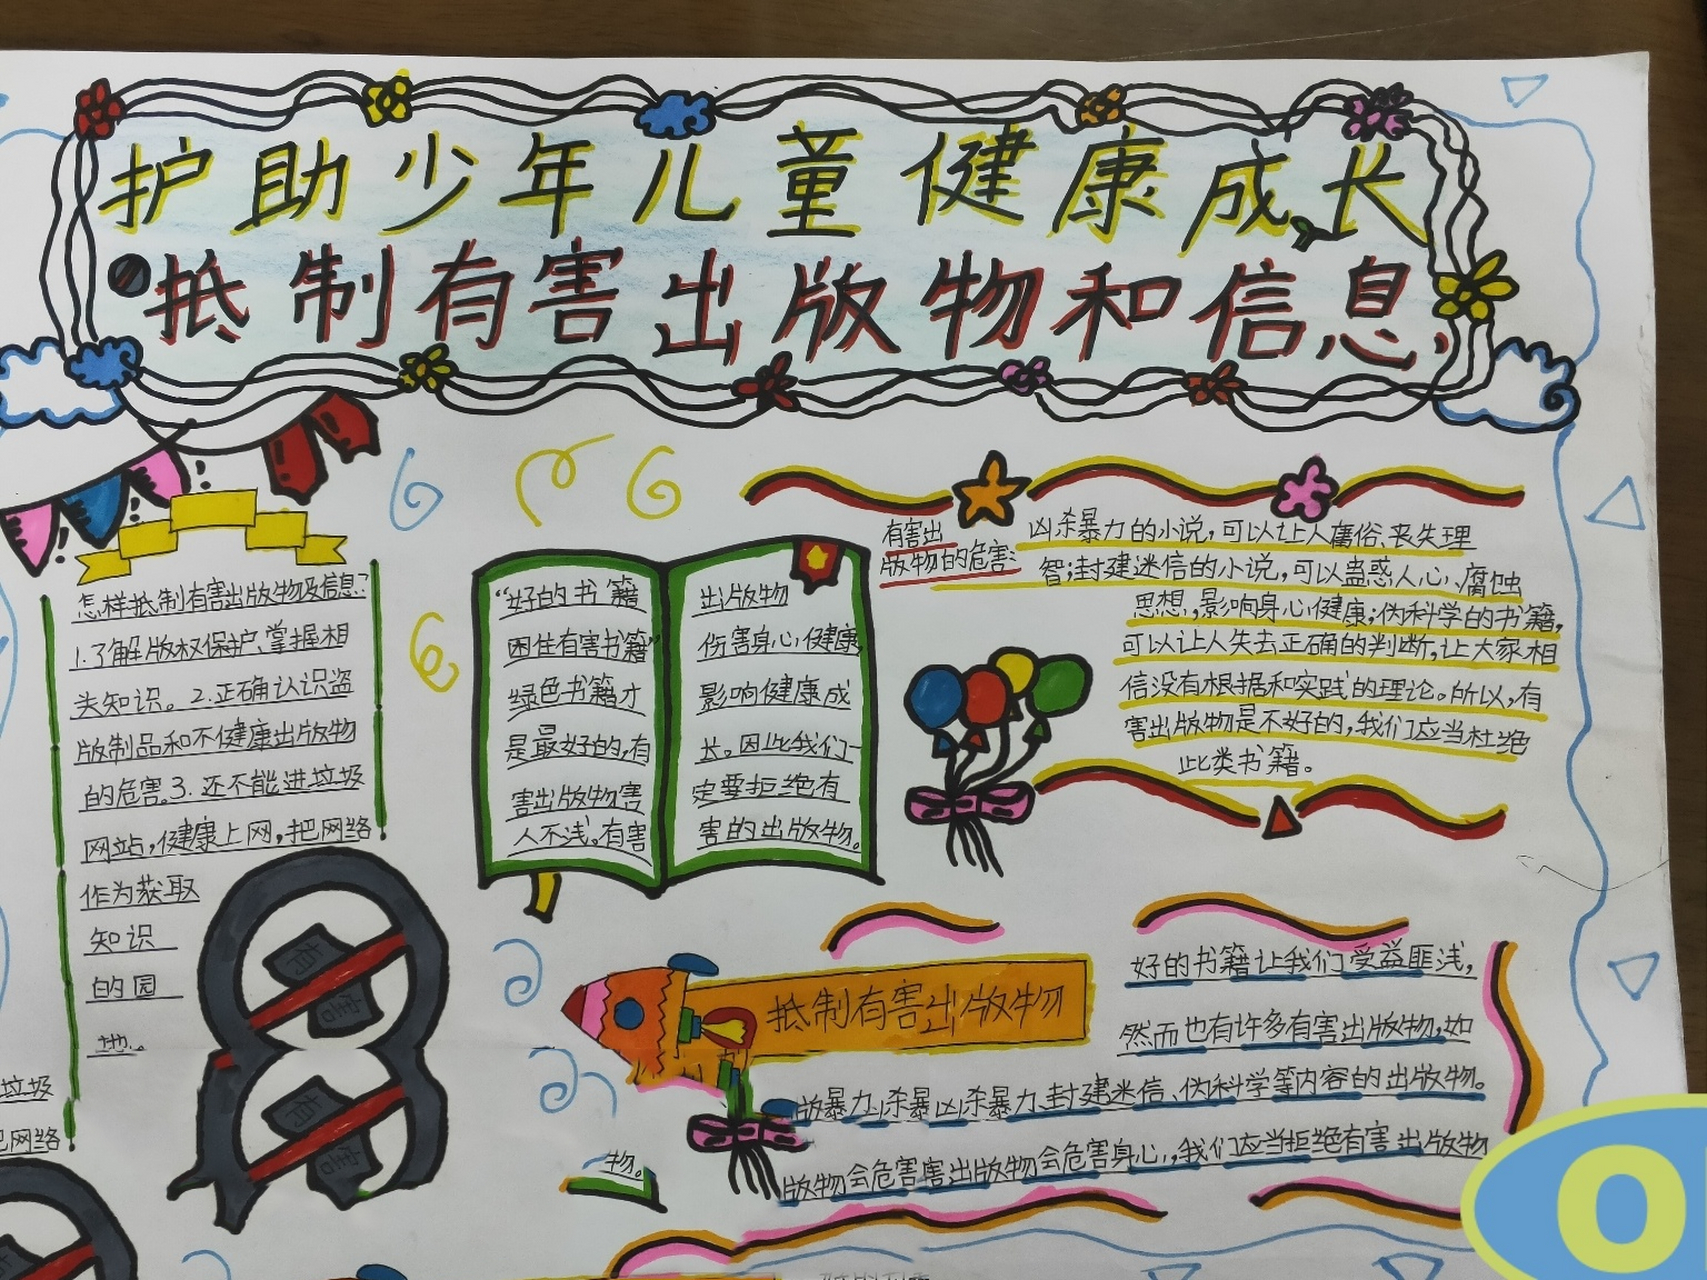 护助少年儿童健康成长
抵制有害出版物和信息
怎样抵制有害出版物及信息?
1.了解版权保护、掌握相
关知识。2.正确认识盗
版制品和不健康出版物
的危害。3.还不能进垃圾
网站,健康上网,把网络
作为获取
知识
的园
地。
垃圾
把网络
有
害
有
害
“好的书籍
困住有害书籍”
绿色书籍才
是最好的,有
害出版物害
人不浅。有害
出版物
伤害身心健康,
影响健康成
长。因此我们一
定要拒绝有
害的出版物。
有害出
版物的危害:
凶杀暴力的小说,可以让人庸俗、丧失理
智;封建迷信的小说,可以蛊惑人心、腐蚀
思想,影响身心健康;伪科学的书籍,
可以让人失去正确的判断,让大家相
信没有根据和实践的理论。所以,有
害出版物是不好的,我们应当杜绝
此类书籍。
抵制有害出版物
好的书籍让我们受益匪浅,
然而也有许多有害出版物,如
版暴力、杀暴凶杀暴力、封建迷信、伪科学等内容的出版物。
版物会危害害出版物会危害身心,我们应当拒绝有害出版物
物。
O